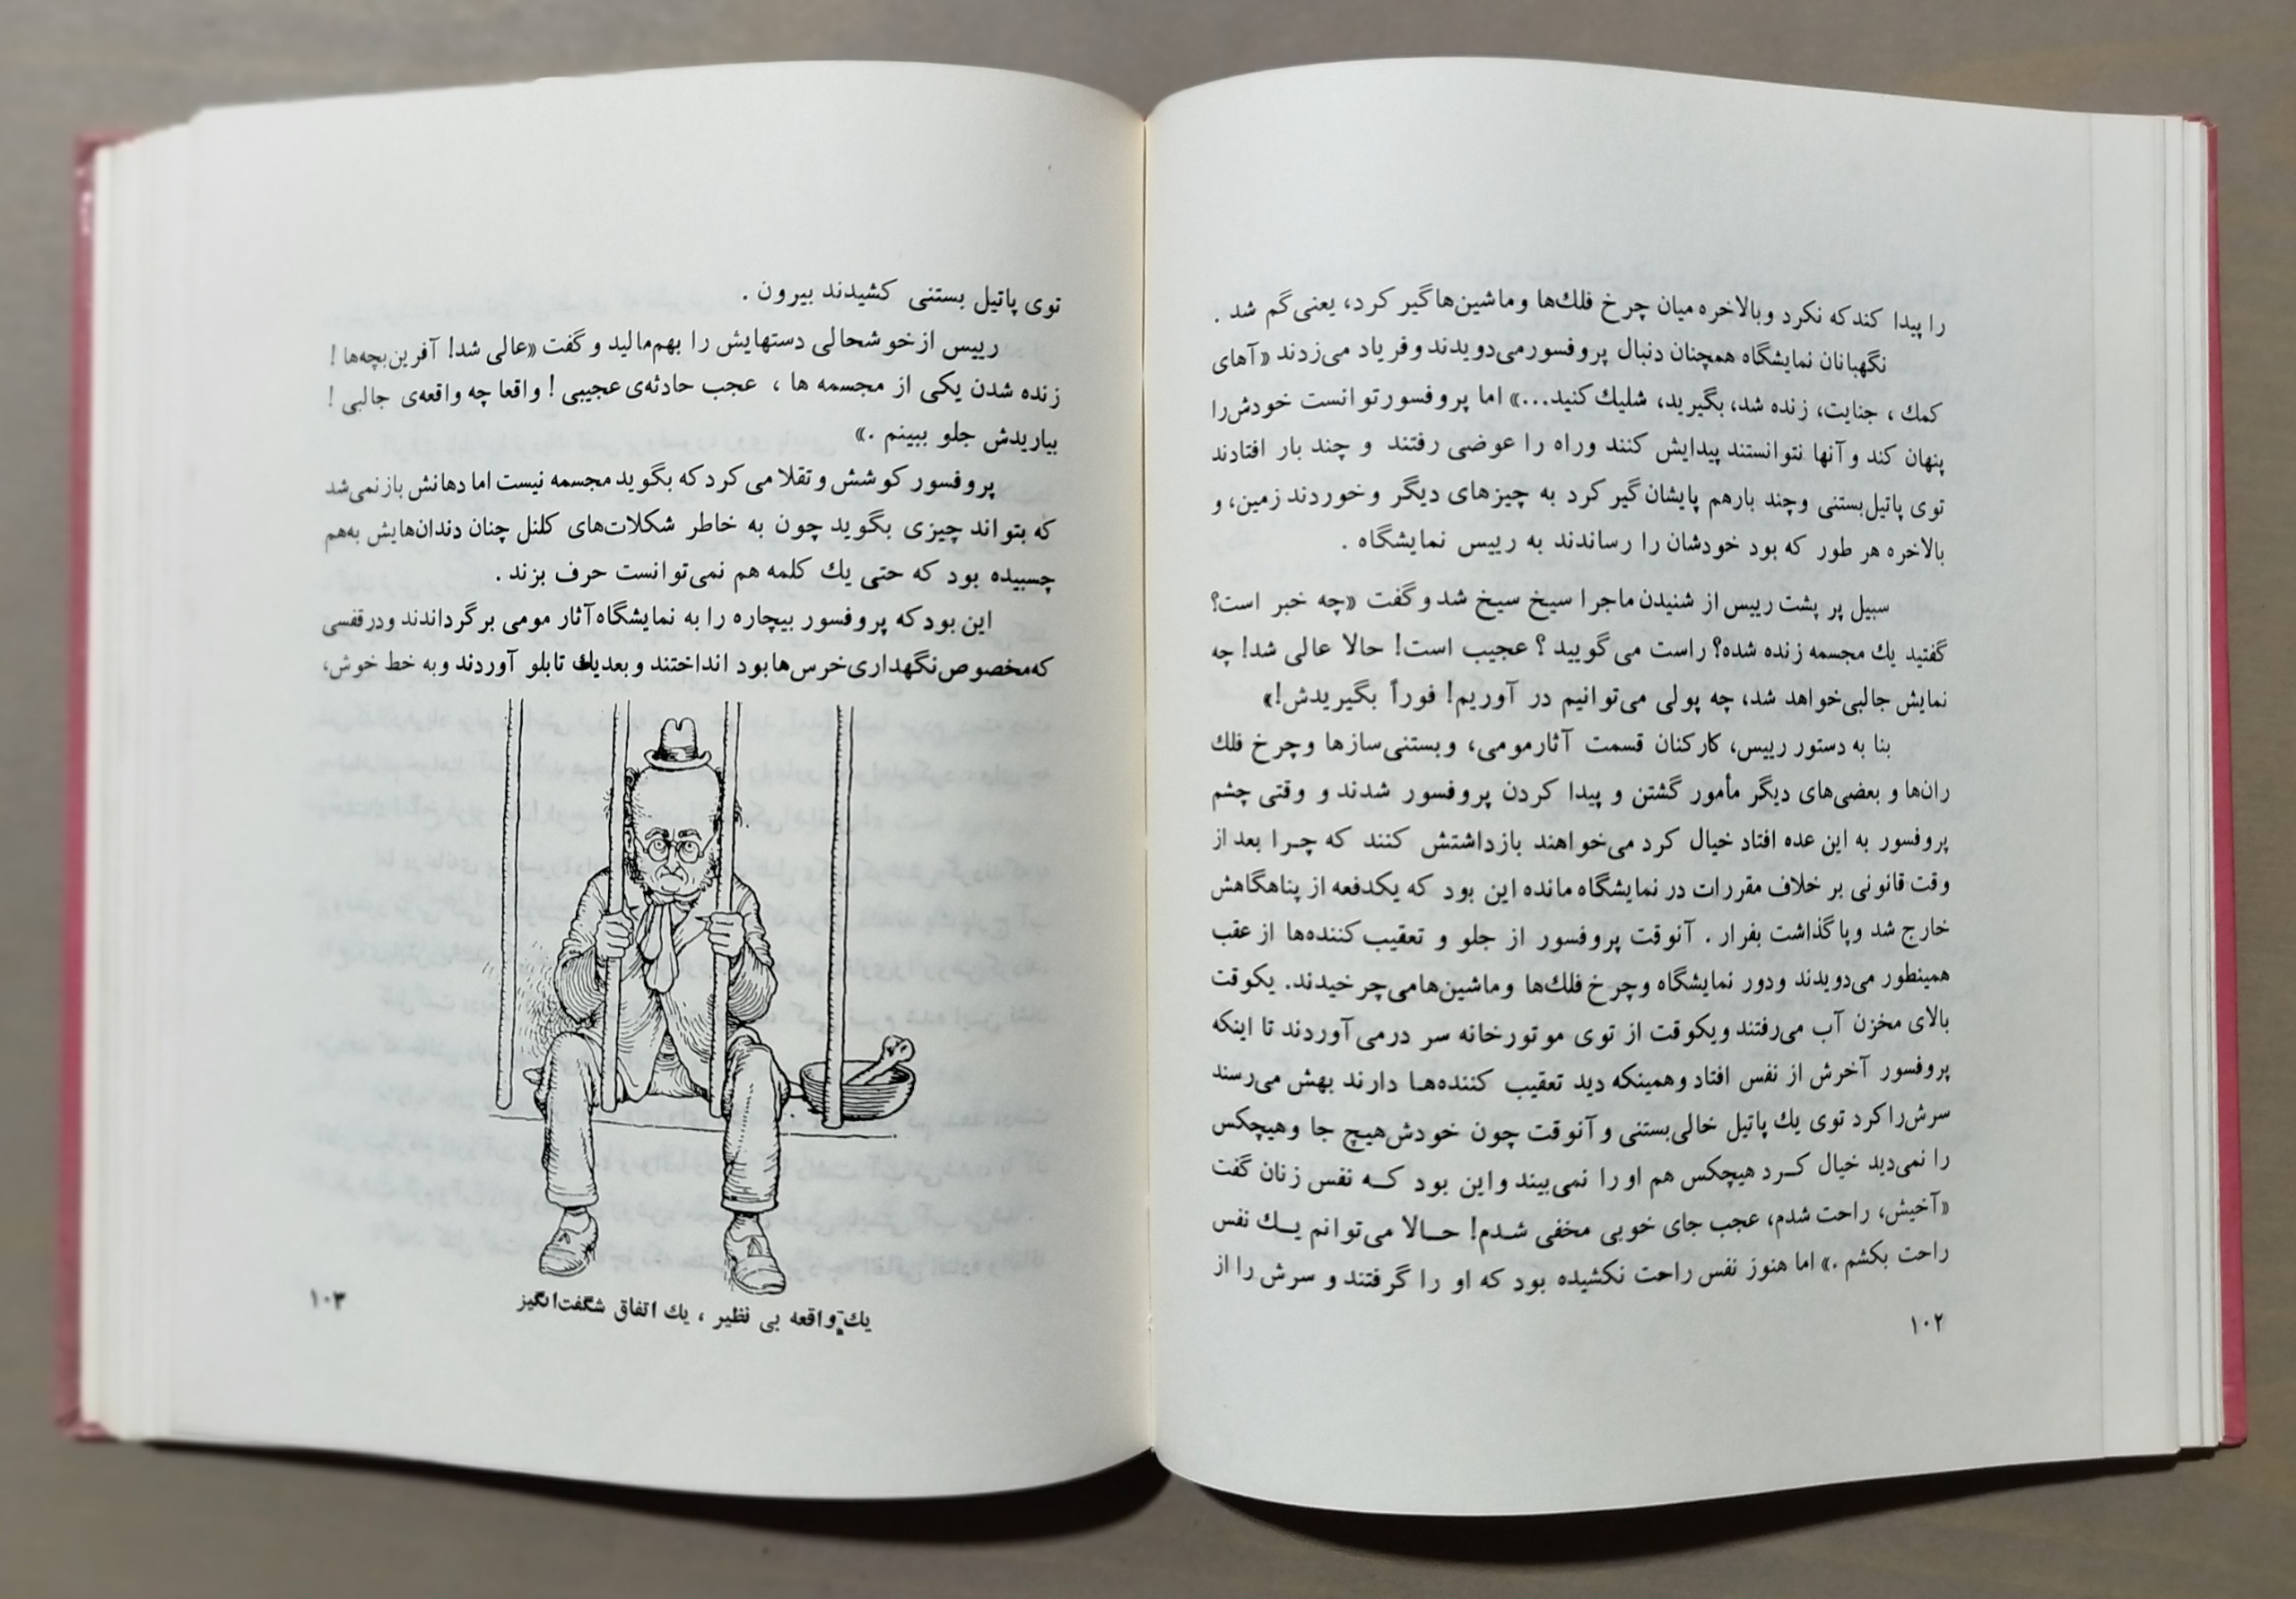 را پیدا کند که نکرد و بالاخره میان چرخ فلك‌ها و ماشین‌ها گیر کرد، یعنی گم شد .
نگهبانان نمایشگاه همچنان دنبال پروفسور می‌دویدند و فریاد می‌زدند «آهای
کمك ، جنایت، زنده شد، بگیرید، شلیك کنید...» اما پروفسور توانست خودش را
پنهان کند و آنها نتوانستند پیدایش کنند و راه را عوضی رفتند و چند بار افتادند
توی پاتیل بستنی و چند بار هم پایشان گیر کرد به چیزهای دیگر و خوردند زمین، و
بالاخره هر طور که بود خودشان را رساندند به رییس نمایشگاه .
سبیل پر پشت رییس از شنیدن ماجرا سیخ سیخ شد و گفت «چه خبر است؟
گفتید یك مجسمه زنده شده؟ راست می‌گویید ؟ عجیب است! حالا عالی شد! چه
نمایش جالبی خواهد شد، چه پولی می‌توانیم در آوریم! فوراً بگیریدش!»
بنا به دستور رییس، کارکنان قسمت آثار مومی، و بستنی سازها و چرخ فلك
ران‌ها و بعضی‌های دیگر مأمور گشتن و پیدا کردن پروفسور شدند و وقتی چشم
پروفسور به این عده افتاد خیال کرد می‌خواهند بازداشتش کنند که چرا بعد از
وقت قانونی بر خلاف مقررات در نمایشگاه مانده این بود که یکدفعه از پناهگاهش
خارج شد و پا گذاشت بفرار . آنوقت پروفسور از جلو و تعقیب کننده‌ها از عقب
همینطور می‌دویدند و دور نمایشگاه و چرخ فلك‌ها و ماشین‌ها می‌چرخیدند. یکوقت
بالای مخزن آب می‌رفتند و یکوقت از توی موتورخانه سر درمی‌آوردند تا اینکه
پروفسور آخرش از نفس افتاد و همینکه دید تعقیب کننده‌ها دارند بهش می‌رسند
سرش را کرد توی یك پاتیل خالی بستنی و آنوقت چون خودش هیچ جا و هیچکس
را نمی‌دید خیال کرد هیچکس هم او را نمی‌بیند و این بود که نفس زنان گفت
«آخیش، راحت شدم، عجب جای خوبی مخفی شدم! حالا می‌توانم یك نفس
راحت بکشم .» اما هنوز نفس راحت نکشیده بود که او را گرفتند و سرش را از
۱۰۲
توی پاتیل بستنی کشیدند بیرون .
رییس از خوشحالی دستهایش را بهم مالید و گفت «عالی شد! آفرین بچه‌ها !
زنده شدن یکی از مجسمه ها ، عجب حادثه‌ی عجیبی ! واقعا چه واقعه‌ی جالبی !
بیاریدش جلو ببینم .»
پروفسور کوشش و تقلا می کرد که بگوید مجسمه نیست اما دهانش باز نمی‌شد
که بتواند چیزی بگوید چون به خاطر شکلات‌های کلنل چنان دندان‌هایش به‌هم
چسبیده بود که حتی یك کلمه هم نمی‌توانست حرف بزند .
این بود که پروفسور بیچاره را به نمایشگاه آثار مومی برگرداندند و در قفسی
که مخصوص نگهداری خرس‌ها بود انداختند و بعد یك تابلو آوردند و به خط خوش،
یك واقعه بی نظیر ، یك اتفاق شگفت‌انگیز
۱۰۳